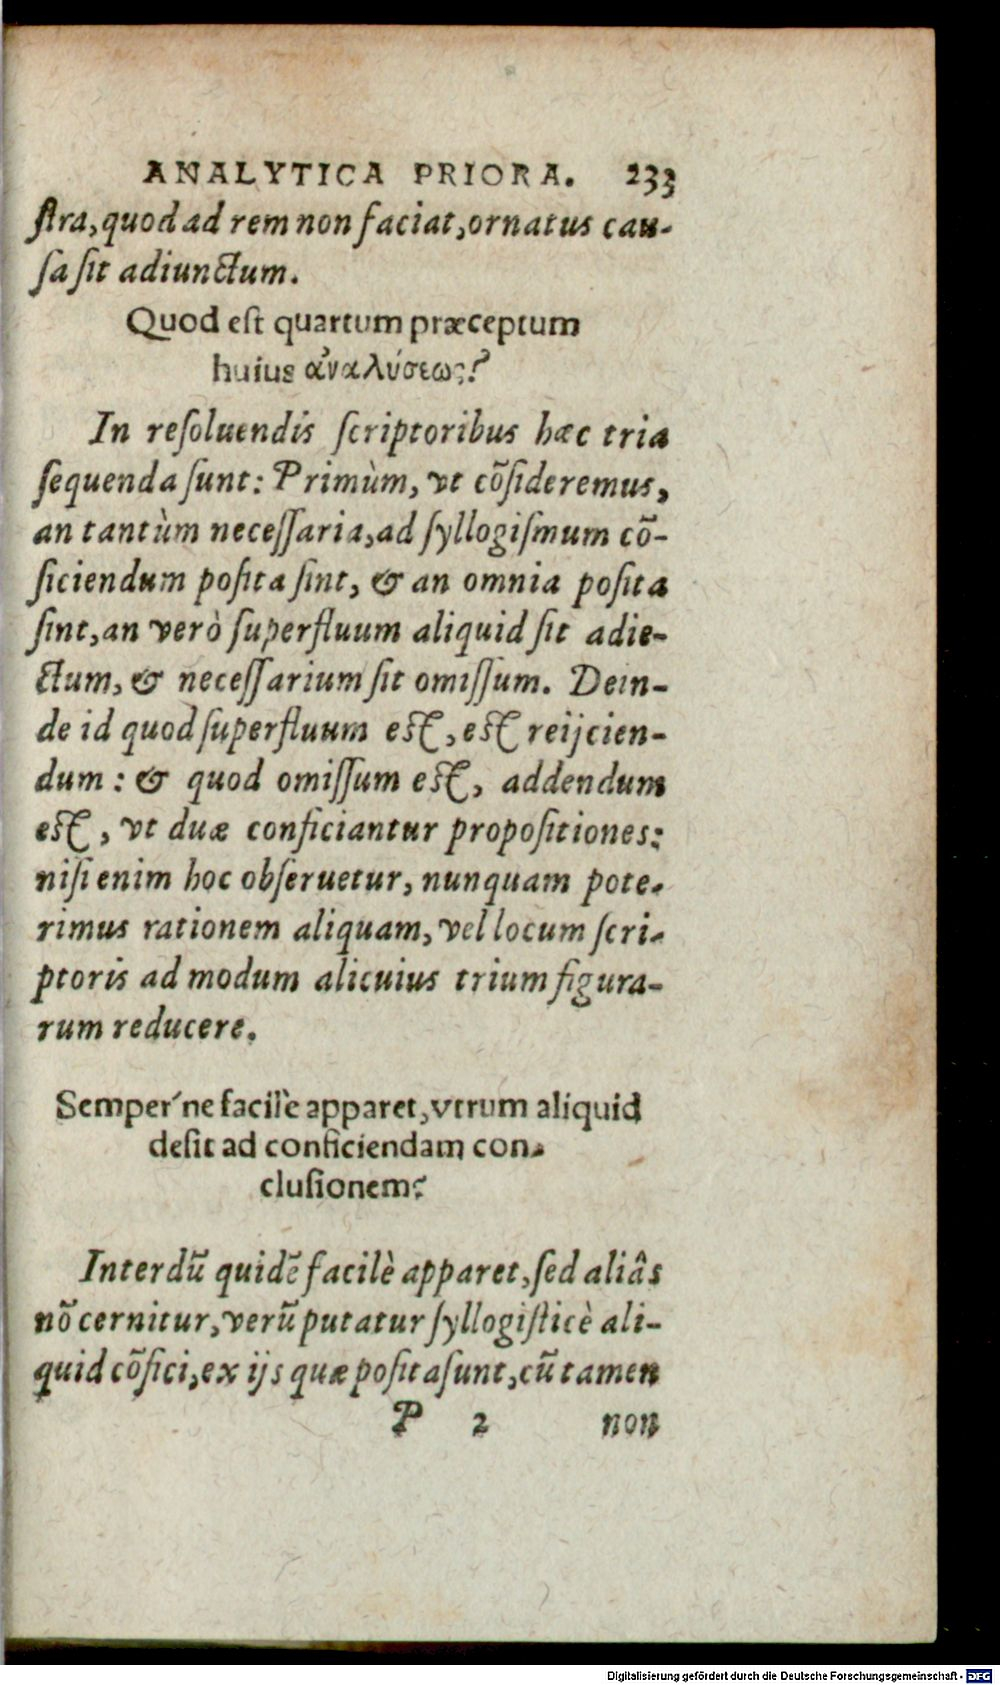 ANALYTICA PRIORA. 233
ſtra, quod ad rem non faciat, ornatus cau-
ſa ſit adiunctum.
Quod eſt quartum præceptum
huius ἀναλύσεως?
In reſoluendis ſcriptoribus hæc tria
ſequenda ſunt: Primùm, vt cõſideremus,
an tantùm neceſſaria, ad ſyllogiſmum cõ-
ficiendum poſita ſint, & an omnia poſita
ſint, an verò ſuperfluum aliquid ſit adie-
ctum, & neceſſarium ſit omiſſum. Dein-
de id quod ſuperfluum eſt, eſt reijcien-
dum: & quod omiſſum eſt, addendum
eſt, vt duæ conficiantur propoſitiones:
niſi enim hoc obſeruetur, nunquam pote-
rimus rationem aliquam, vel locum ſcri-
ptoris ad modum alicuius trium figura-
rum reducere.
Semper'ne facilè apparet, vtrum aliquid
deſit ad conficiendam con-
cluſionem?
Interdũ quidẽ facilè apparet, ſed aliâs
nõ cernitur, verũ putatur ſyllogiſticè ali-
quid cõfici, ex ijs quæ poſita ſunt, cũ tamen
P 2 non
Digitalisierung gefördert durch die Deutsche Forschungsgemeinschaft - DFG